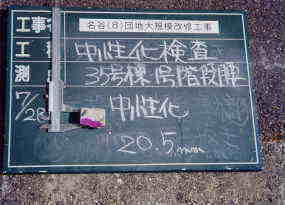 工事名 名谷(8)団地大規模改修工事
工 中性化検査
測 35号棟 階段
7/28 中性化
20.5mm